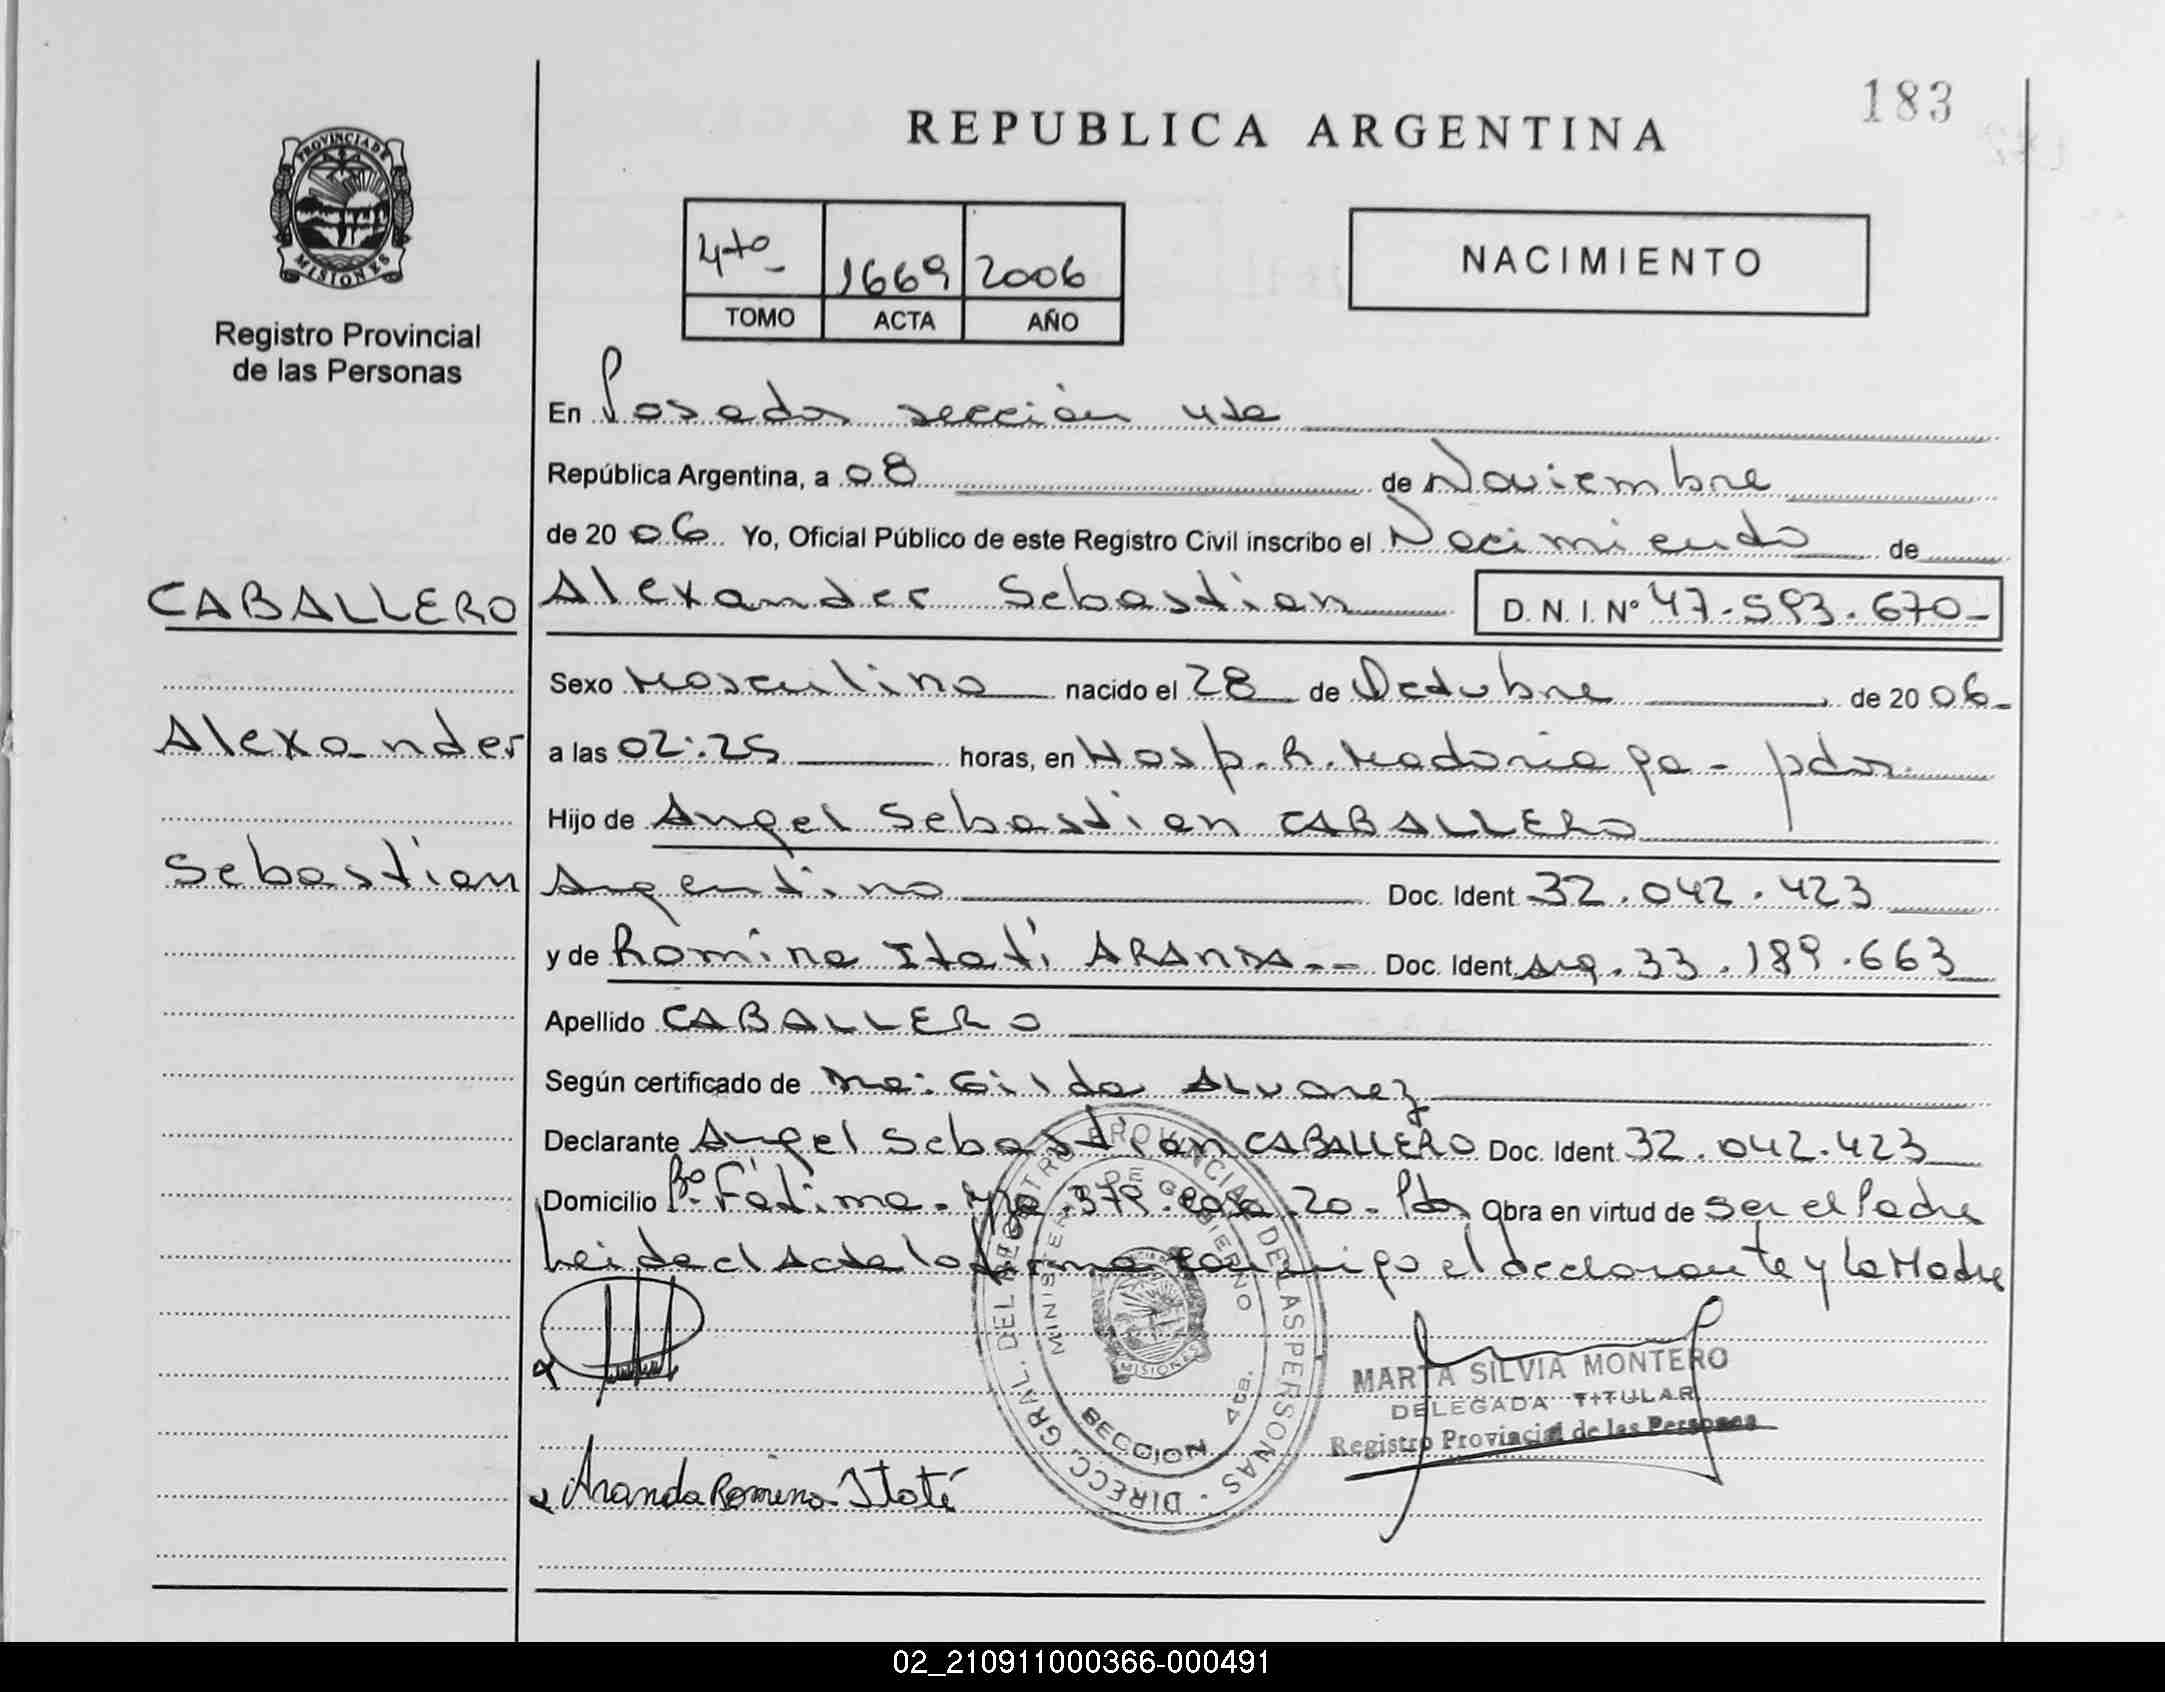 183
REPUBLICA ARGENTINA
PROVINCIA DE
MISIONES
Registro Provincial
de las Personas
4to- 1669 2006
TOMO ACTA AÑO
NACIMIENTO
En Posadas sección 4ta
República Argentina, a 08 de Noviembre
de 20 06 Yo, Oficial Público de este Registro Civil inscribo el Nacimiento de
CABALLERO Alexander Sebastian D. N. I. N° 47.593.670-
Sexo Masculino nacido el 28 de Octubre de 20 06-
Alexander a las 02:25 horas, en Hosp. R. Madariaga - pdas.
Hijo de Angel Sebastian CABALLERO
Sebastian Argentino Doc. Ident. 32.042.423
y de Romina Itatí ARANDA-- Doc. Ident. Arg. 33.189.663
Apellido CABALLERO
Según certificado de Gilda Alvarez
Declarante Angel Sebastian CABALLERO Doc. Ident. 32.042.423
Domicilio Bº Fátima - casa 20 - Pdas Obra en virtud de ser el Padre
Leida el Acta la firma conmigo el declarante y la Madre
DIRECC. GRAL. DEL REGISTRO PROVINCIAL DE LAS PERSONAS -
MINISTERIO DE GOBIERNO
MISIONES
SECCION 4ta.
MARTA SILVIA MONTERO
DELEGADA TITULAR
Registro Provincial de las Personas
Aranda Romina Itatí
02_210911000366-000491